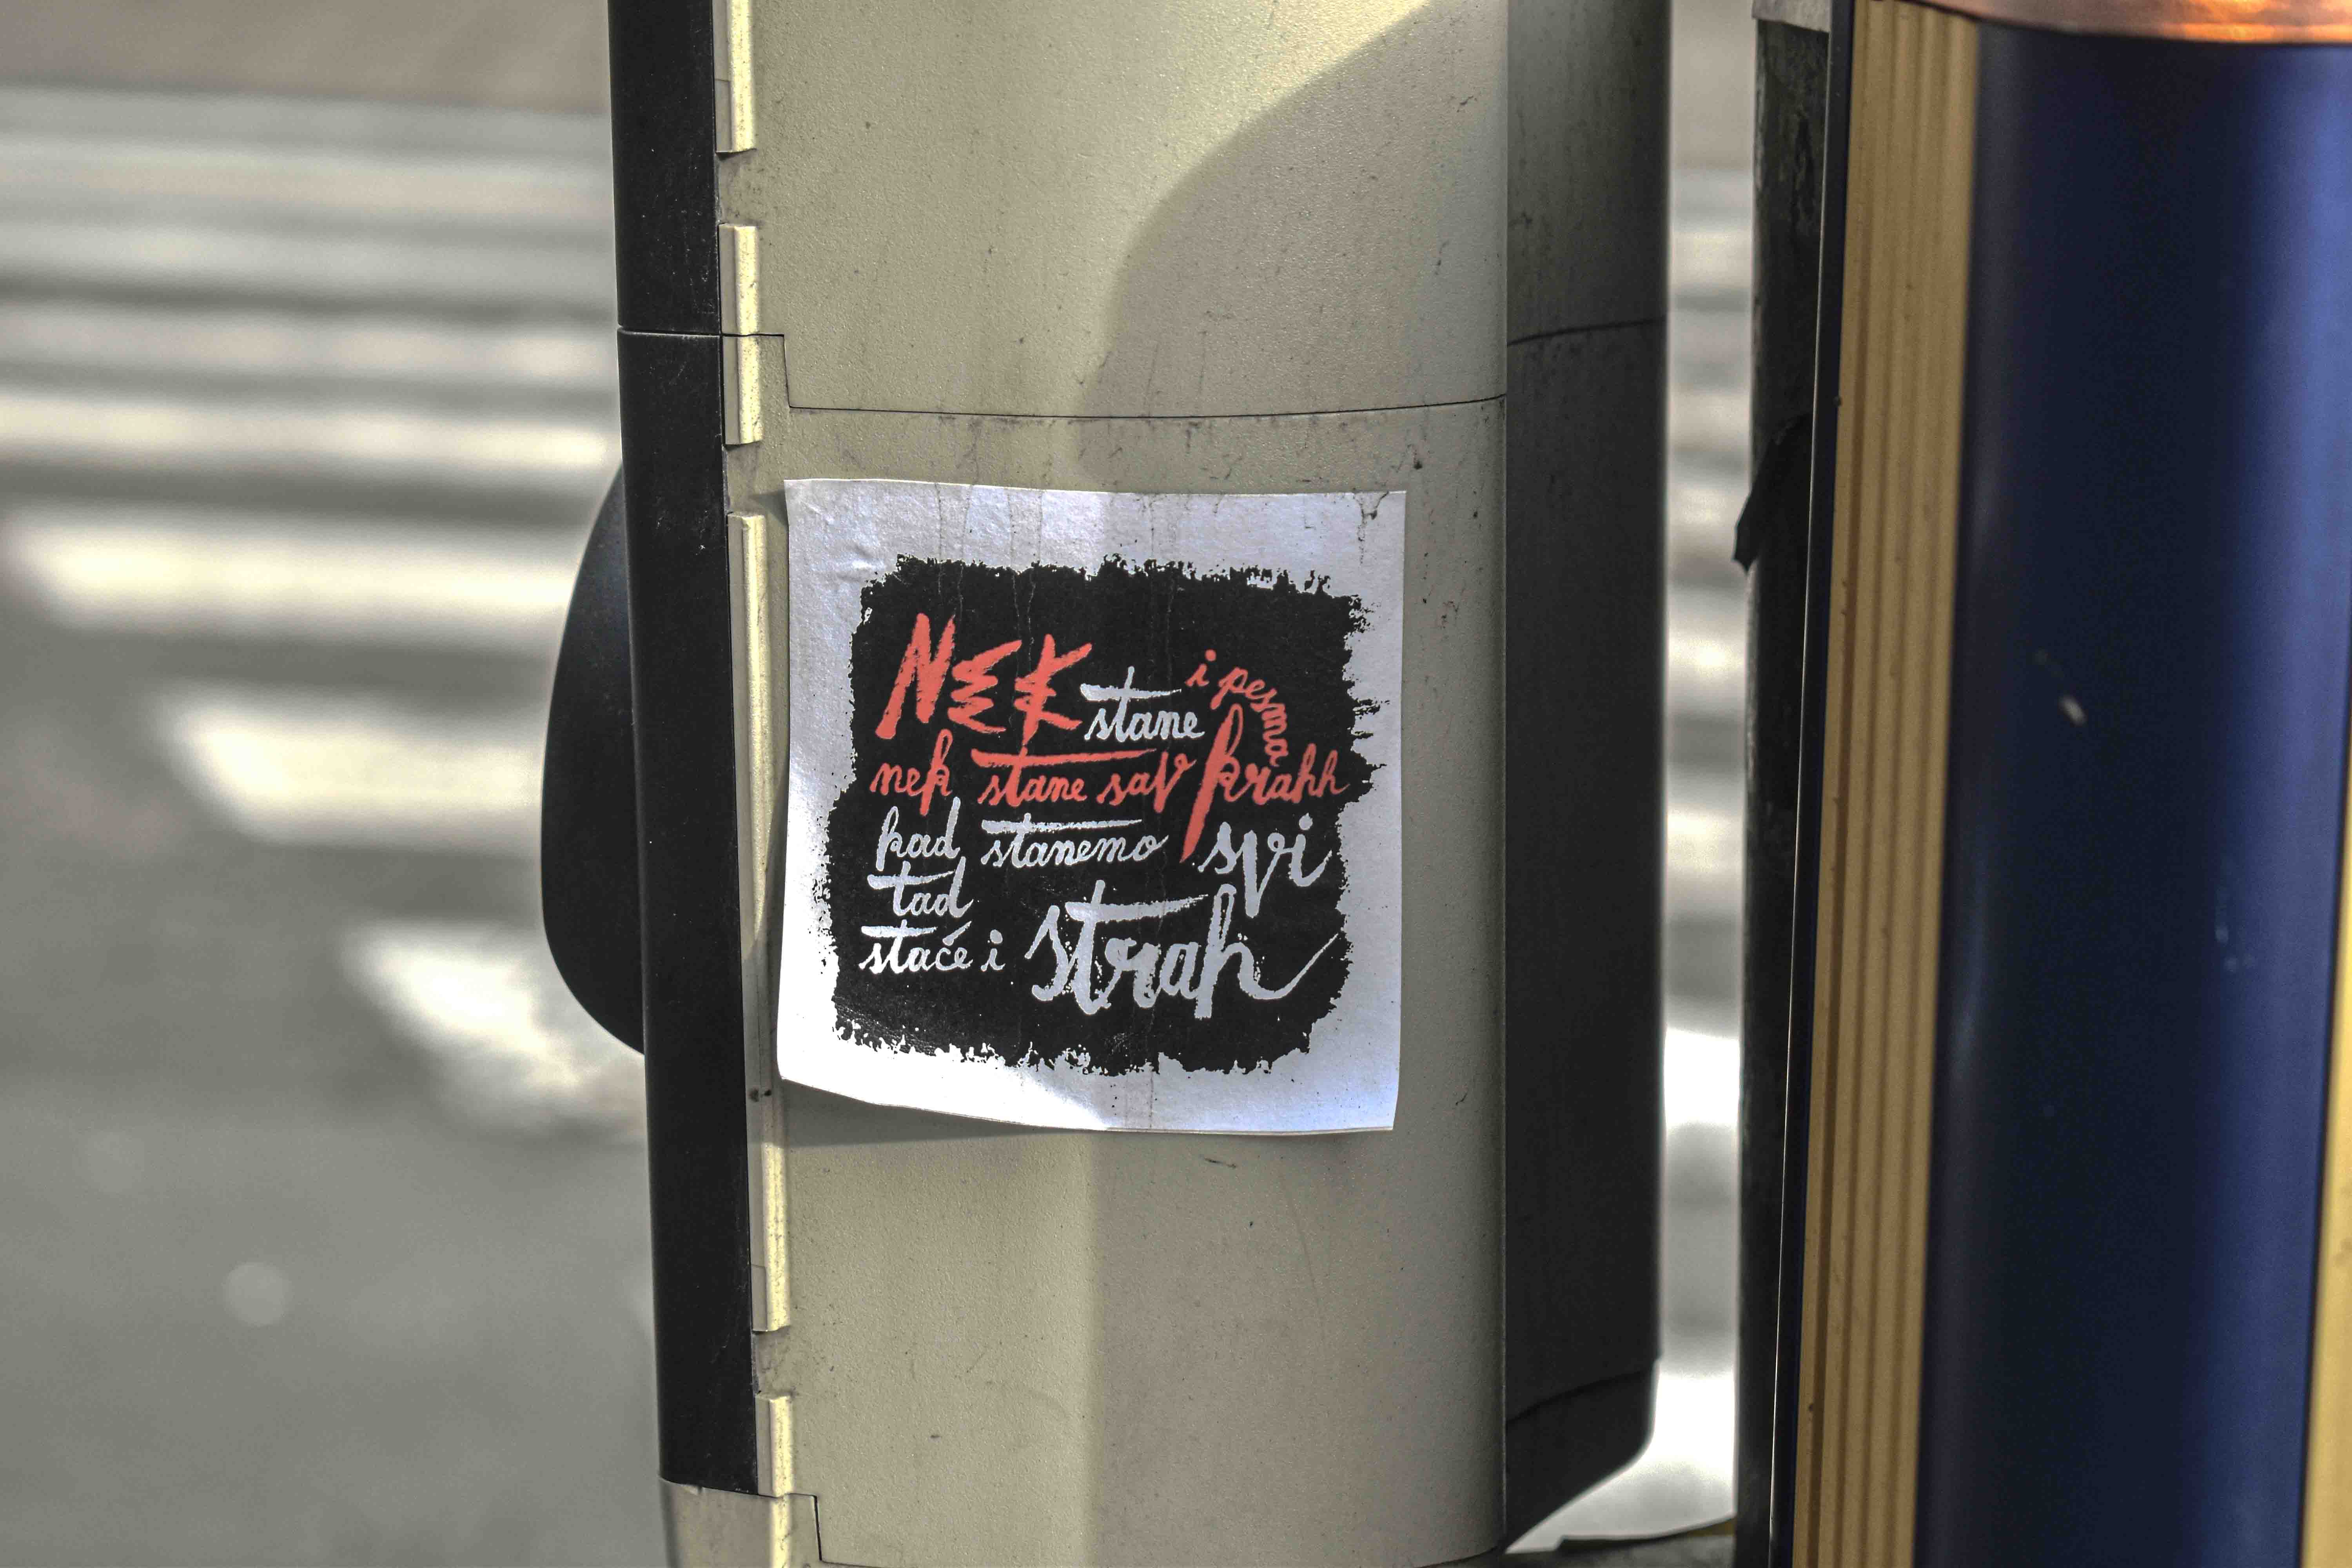 NEK stane i pesma
nek stane sav krahh
kad stanemo svi
tad
staće i strah